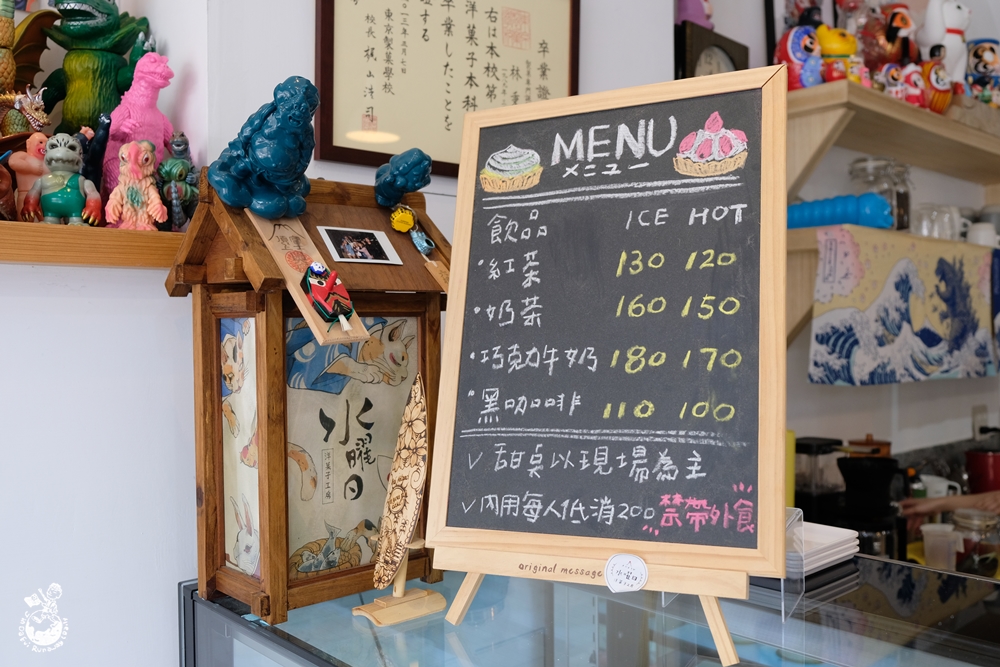 卒業證
右は本校第
洋菓子本科
卒業したことを
證する
東京製菓學校
校長 梶山浩司
MENU
メニュー
飲品 ICE HOT
・紅茶 130 120
・奶茶 160 150
・巧克力牛奶 180 170
・黑咖啡 110 100
✓ 甜点以現場為主
✓ 內用每人低消200 禁帶外食
original message
水曜日
水曜日
洋菓子工房